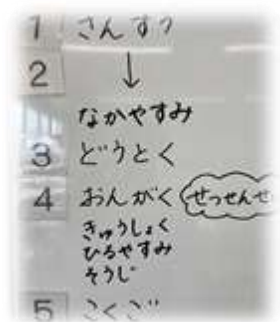 1 さんすう
2 ↓
なかやすみ
3 どうとく
4 おんがく
きゅうしょく
ひるやすみ
そうじ
5 こくご